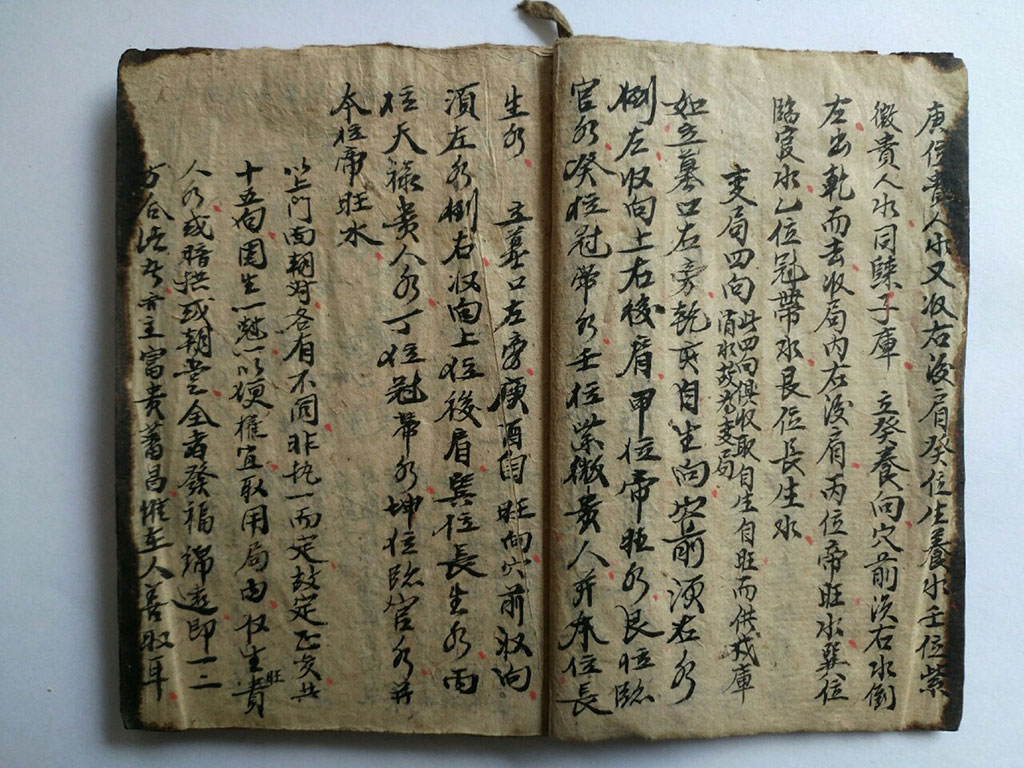 庚位貴人水又収右後肩癸位生養水壬位紫
微貴人水同歸子庫　立癸養向穴前湏右水倒
左出乾而去収局内右後肩丙位帝旺水巽位
臨官水乙位冠帶水艮位長生水
変局四向
此四向俱収取自生自旺而借庫
消水故為变局
如立墓口右旁乾亥自生向穴前湏右水
倒左収向上右後肩甲位帝旺水艮位臨
官水癸位冠帶水壬位紫微貴人水并本位長
生水　立墓口左旁庚酉自旺向穴前収向
湏左水倒右収向上位後肩巽位長生水丙
位天祿貴人水丁位冠帶水坤位臨官水并
本位帝旺水
以上門面朝对各有不同非执一而定故定正变共
十五向圖生一魁一以便權宜取用局内收生旺貴
人水或暗拱或朝堂全者發福綿遠即一二
方合法者亦主富貴蕃昌惟在人善取耳